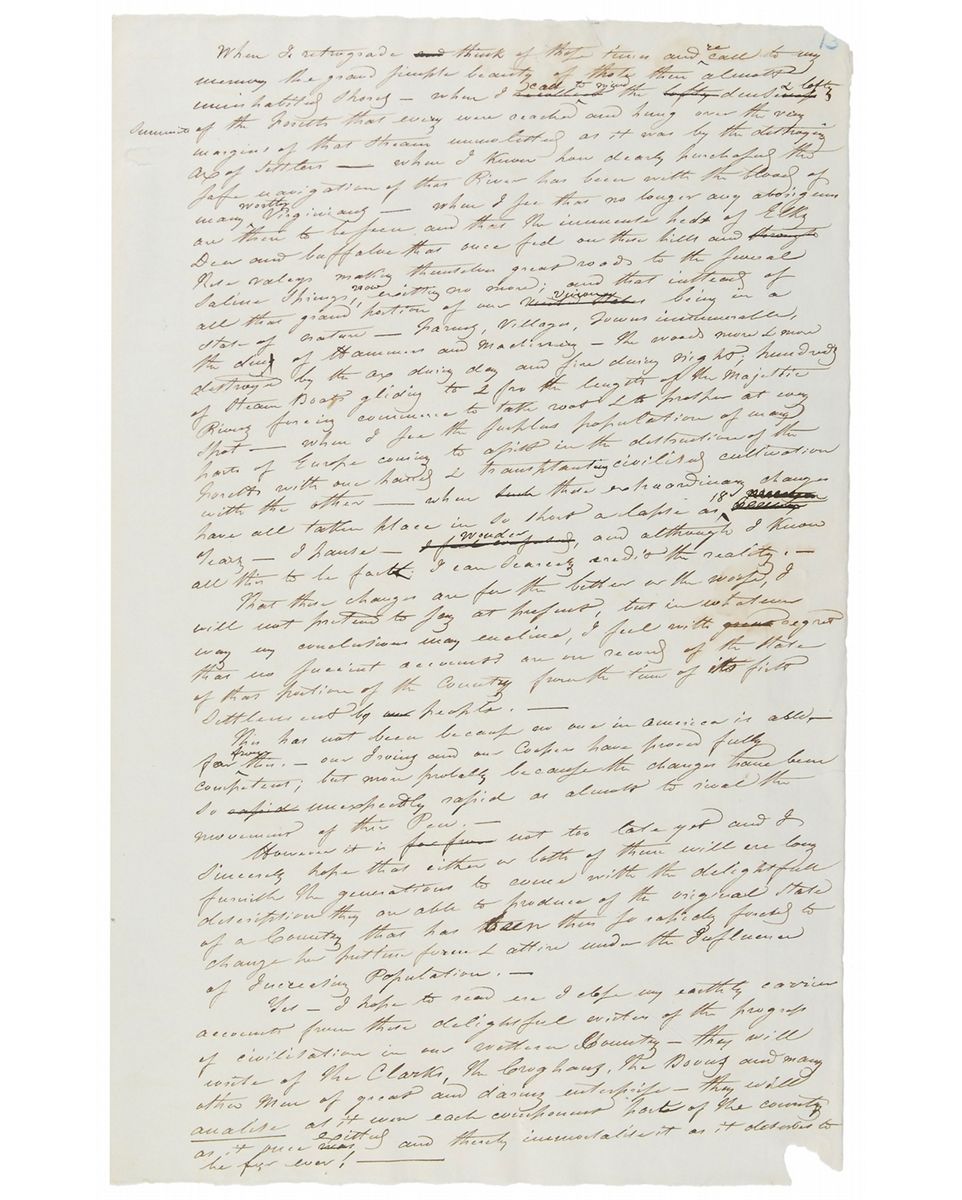 13
When I retrograde and think of those times and recall to my
memory the grand simple beauty of those then almost
uninhabited Shores — when I call to mind the lofty dense & lofty
Summits of the Forests that every were reached and hung over the very
margins of that Stream unmolested as it was by the destroying
Axe of Settlers — when I Know how dearly purchased the
Safe navigation of that River has been with the blood of
many worthy Virginians — when I see that no longer any aborigines
are there to be seen and that the immense heds of Elks
Deer and buffaloe that once fed on these hills and through
these valeys making themselves great roads to the several
Saline Springs, now existing no more; and that instead of
all that grand portion of our Union being in a
State of nature — Farms, Villages, Towns innumerable,
the din of Hammers and Machinery — the woods more & more
destroyed by the axe during day and fire during night; hundreds
of Steam Boats gliding to & fro the length of the Majestic
Rivers forcing commerce to take root & to prosper at every
Spot — when I see the surplus population of many
parts of Europe coming to assist in the destruction of the
Forests with one hand & transplanting civilised cultivation
with the other — when such these extraordinary changes
have all taken place in so short a lapse as 18
Years — I pause — I wonder, and although I Know
all this to be fact I can Scarcely credit the reality. —
That these changes are for the better or the worse, I
will not pretend to say at present, but in whatever
way my conclusions may encline, I feel with great regret
that no succint accounts are on record of the State
of that portion of the Country from the time of its first
Settlement by our people. —
This has not been because no one in America is able
for this. — our Irving and our Cooper have proved fully
competent; but more probably because the changes have been
So rapid unexpectedly rapid as almost to rival the
movement of their Pen. —
However it is far from not too late yet and I
Sincerely hope that either or both of them will ere long
furnish the generations to come with the delightfull
description they are able to produce of the original State
of a Country that has been thus so rapidly forced to
change her pristine form & attire under the Influence
of Increasing Population. —
Yes — I hope to read ere I close my earthly carrier
accounts from those delightful writers of the progress
of civilisation in our western Country — they will
write of the Clarks, the Croghans, the Boons and many
other Men of great and daring enterprise — they will
analise as it were each component part of the country
as it once was existed and thereby immortalise it as it deserves to
be for ever! —